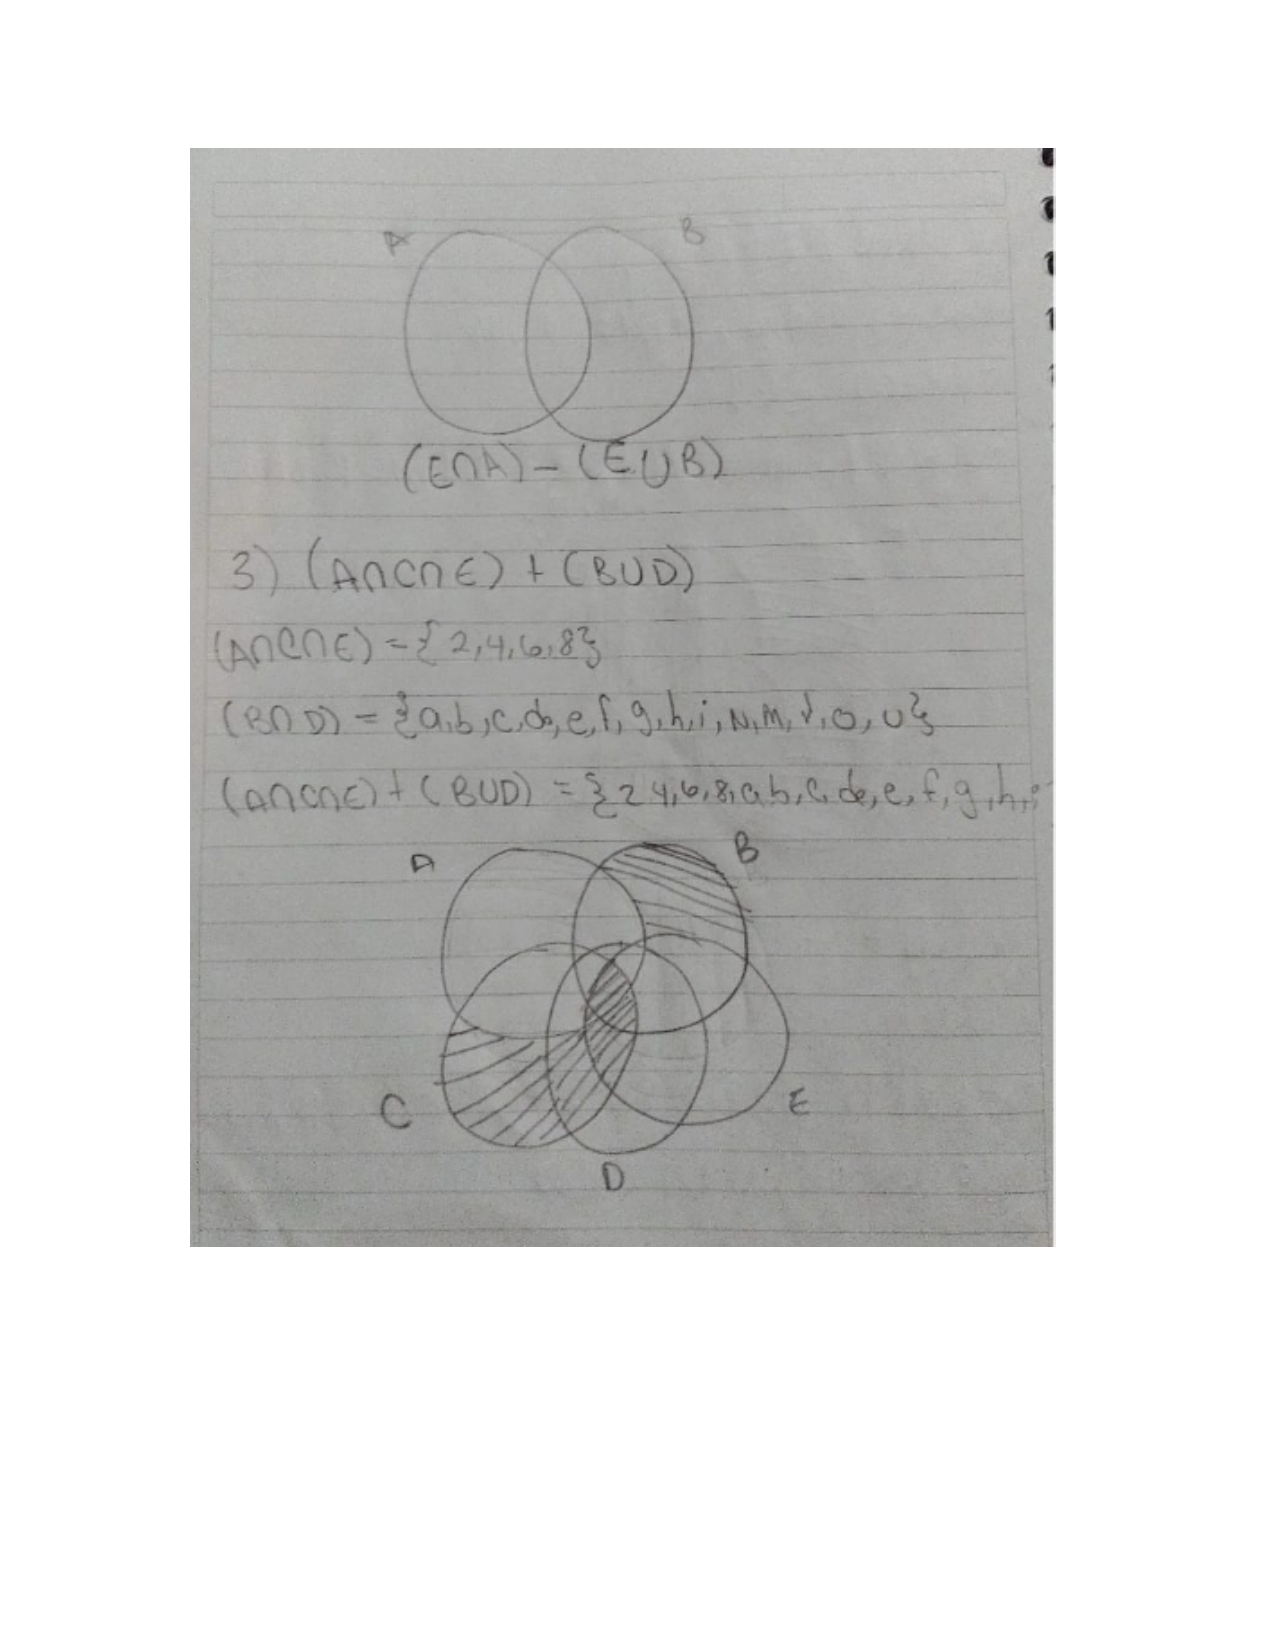 A B
(E∩A) - (E∪B)
3) (A∩C∩E) + (B∪D)
(A∩C∩E) = { 2,4,6,8}
(B∩D) = {a,b,c,d,e,f,g,h,i,N,M, ,o,u}
(A∩C∩E) + (B∪D) = {2 4,6,8,a,b,c,d,e,f,g,h,i
A B
C E
D